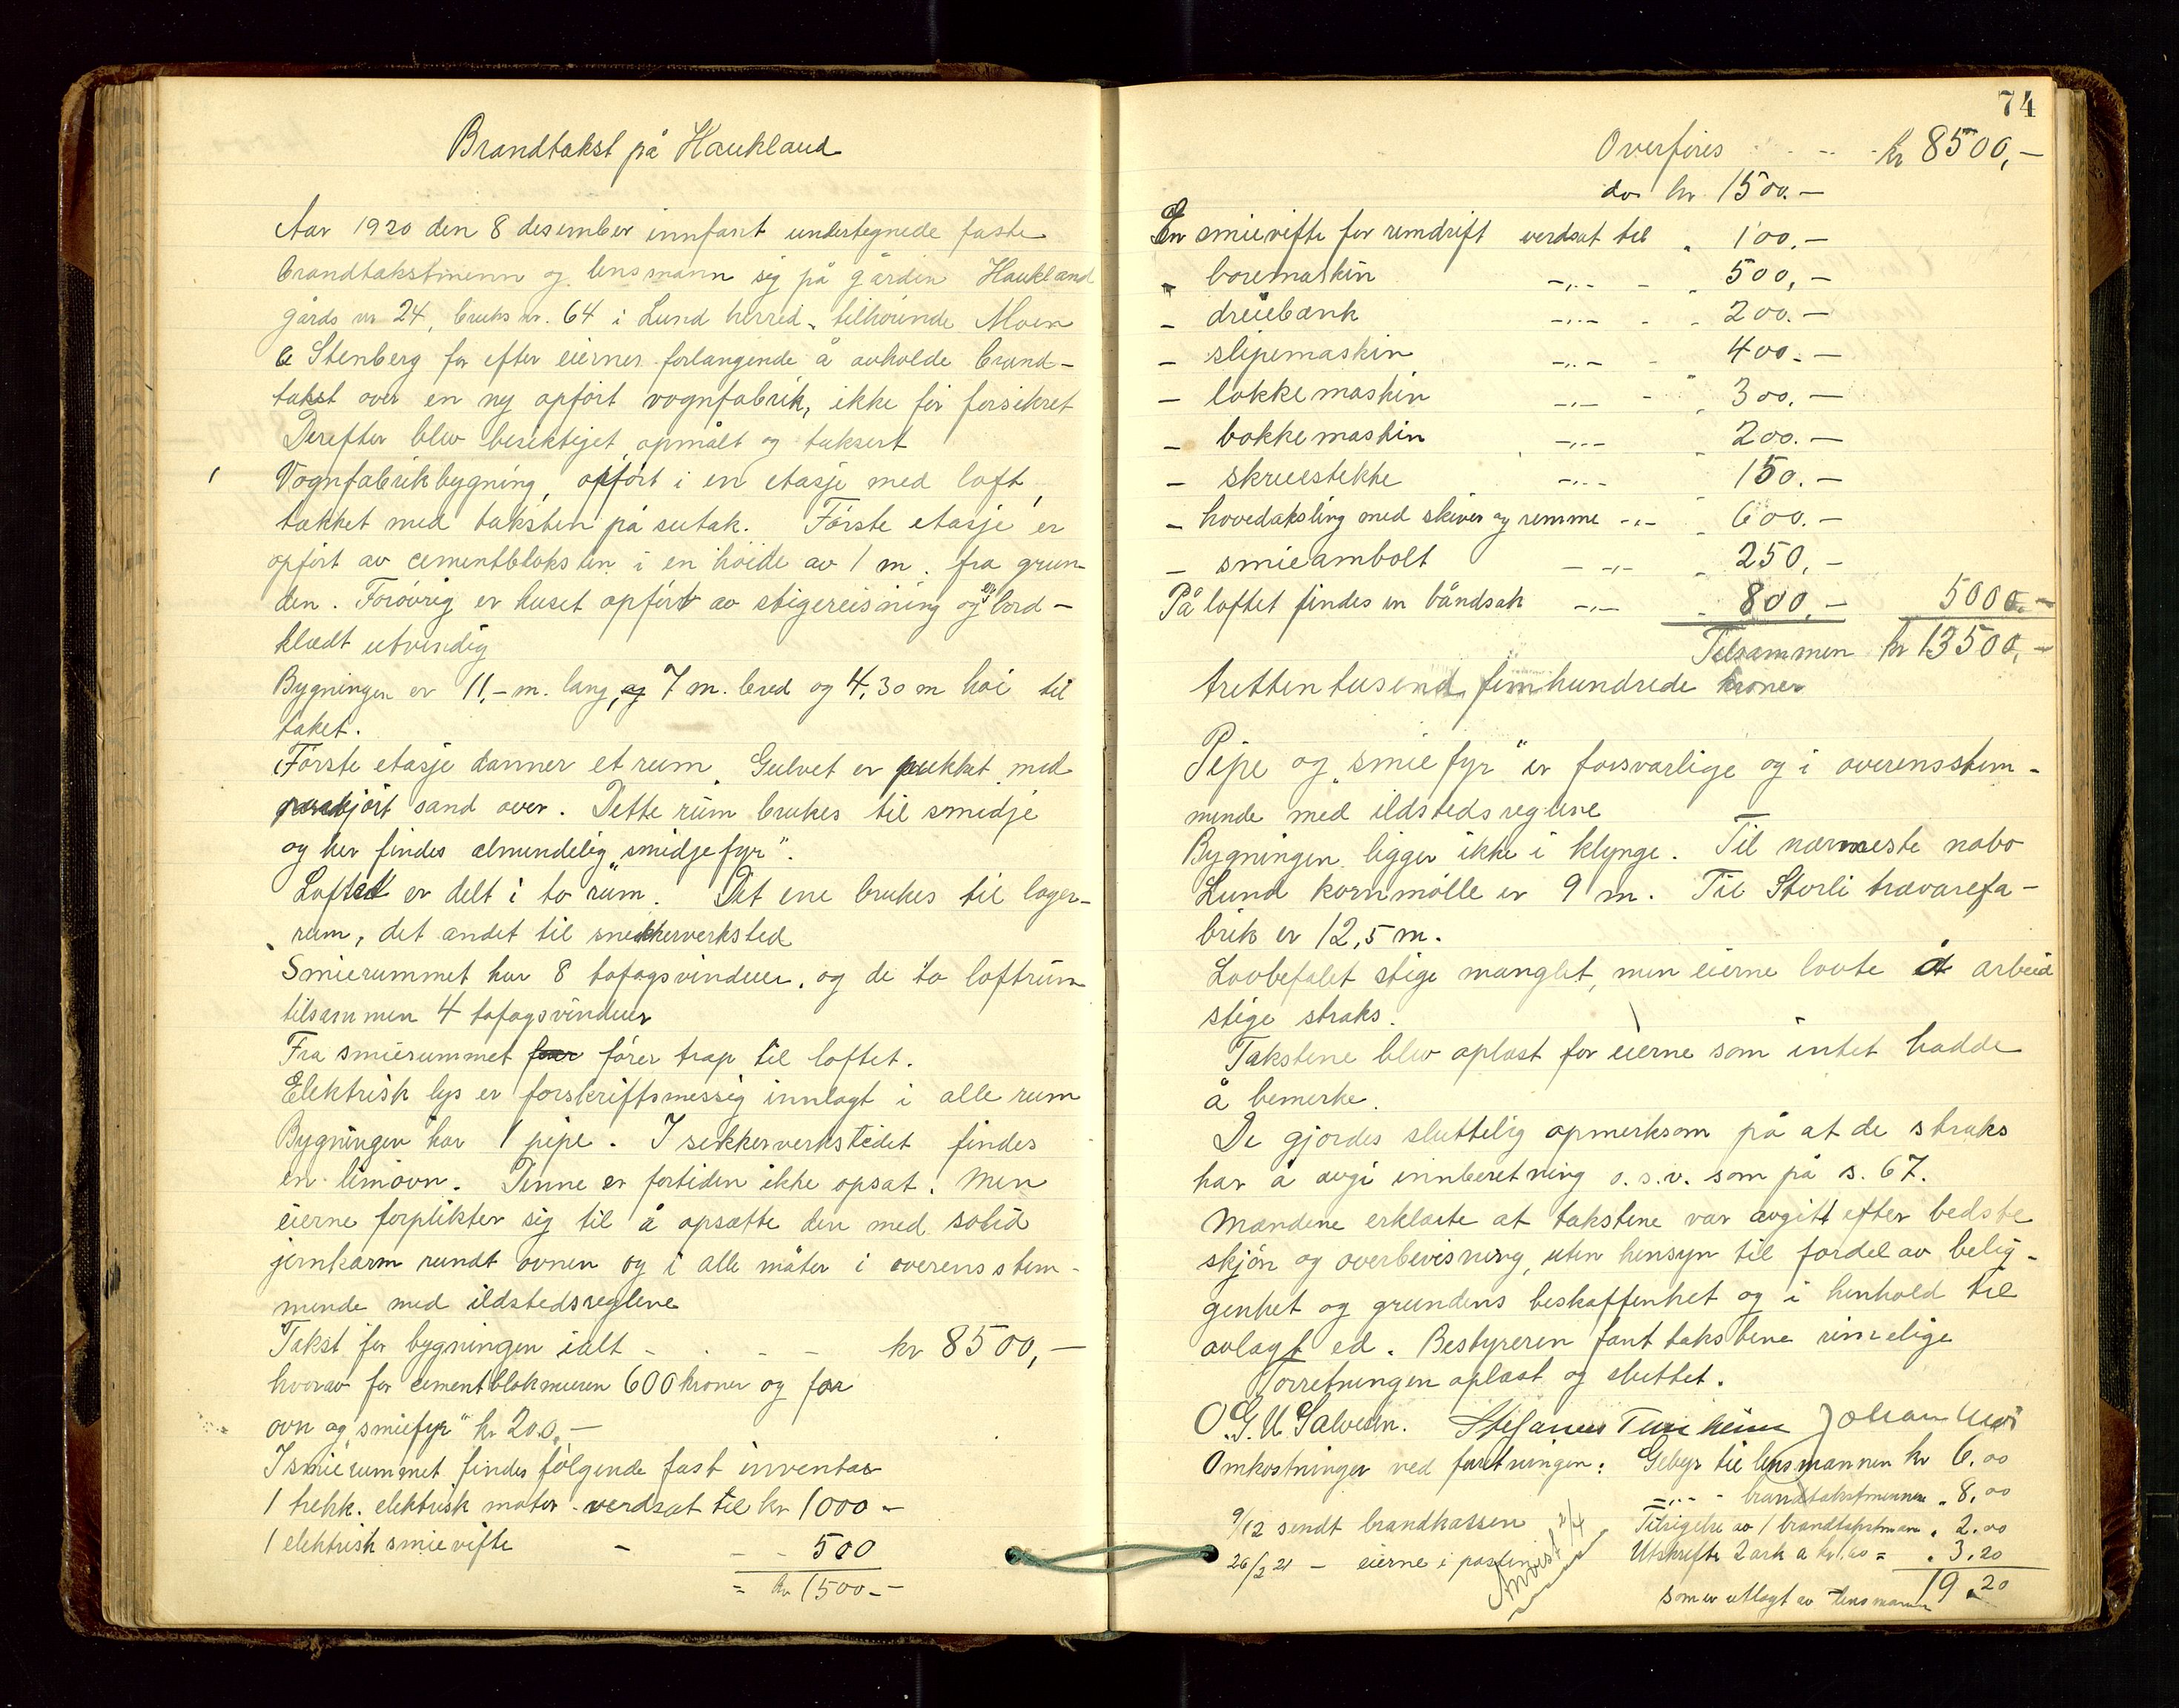 Brandtakst på Haukland
Aar 1920 den 8 desember innfant undertegnede faste
brandtakstmenn og lensmann sig på gården Haukland
gårds nr 24, bruks nr. 64 i Lund herred, tilhörende Moen
& Stenberg for efter eiernes forlangende å avholde brand-
takst over en ny opfört vognfabrik, ikke för forsikret
Derefter blev besiktiget opmålt og taksert
1 Vognfabrikbygning, opfört i en etasje med loft,
tækket med taksten på sutak. Förste etasje er
opfört av cementbloksten i en höide av 1 m. fra grun-
den. Forövrig er huset opfört av stigereisning og bord-
klædt utvendig
Bygningen er 11,- m. lang, 7 m. bred og 4,30 m höi til
taket.
Förste etasje danner et rum. Gulvet er pukket med
påkjört sand over. Dette rum brukes til smidje
og her findes almindelig "smidjefyr".
Loftet er delt i to rum. Det ene brukes til lager-
rum, det andet til snekkerverksted
Smierummet har 8 tofagsvinduer, og de to loftrum
tilsammen 4 tofagsvinduer
Fra smierummet förer trap til loftet.
Elektrisk lys er forskriftsmessig innlagt i alle rum
Bygningen har 1 pipe. I snekkerverkstedet findes
en limovn. Denne er fortiden ikke opsat. Men
eierne forplikter sig til å opsætte den med solid
jernkarm rundt ovnen og i alle måter i overensstem-
mende med ildstedsreglene
Takst for bygningen ialt - - - - kr 8500,-
hvorav for cementblokmuren 600 kroner og for
ovn og "smiefyr" kr 200,-
I smierummet findes følgende fast inventar
1 trehk. elektrisk motor - verdsat til kr 1000 -
1 elektrisk smievifte - - - 500
= kr 1500 - -
74
Overföres - - - kr 8500,-
do kr 1500.-
En smievifte for remdrift verdsat til " 100.-
" boremaskin -"- - " 500,-
- dreiebænk -"- - " 200.-
- slipemaskin -"- - 400.-
- lokkemaskin -"- - " 300.-
- bokkemaskin -"- " 200.-
- skruestikke -"- 150.-
- hovedaksling med skiver og remme -"- " 600.-
- smieambolt - -"- " 250,-
På loftet findes en båndsak -"- " 800,- 5000,-
Tilsammen kr 13500,-
tretten tusend femhundrede kroner
Pipe og "smiefyr" er forsvarlige og i overensstem-
mende med ildstedsreglene
Bygningen ligger ikke i klynge. Til nærmeste nabo
Lund kornmölle er 9 m. Til Storli trævarefa-
brik er 12,5 m.
Lovbefalet stige manglet, men eierne lovte å arbeid
stige straks.
Takstene blev oplæst for eierne som intet hadde
å bemerke.
De gjordes sluttelig opmerksom på at de straks
har å avgi innberetning o.s.v. som på s. 67.
Mændene erklærte at takstene var avgitt efter bedste
skjön og overbevisning, uten hensyn til fordel av belig-
genhet og grundens beskaffenhet og i henhold til
avlagt ed. Bestyreren fant takstene rimelige
Forretningen oplæst og sluttet.
O.G.U. Salvesen. Stefanus Tunheim Johan
Omkostninger ved forretningen: Gebyr til lensmannen kr 6.00
-"- - brandtakstmennene " 8.00
9/12 sendt brandkassen Tilsigelse av 1 brandtakstmann " 2.00
26/2 21 - eierne i posten Utskrifter 2 ark a kr 1.60 = " 3.20
Anvist 2/4
19.20
som er utlagt av lensmannen